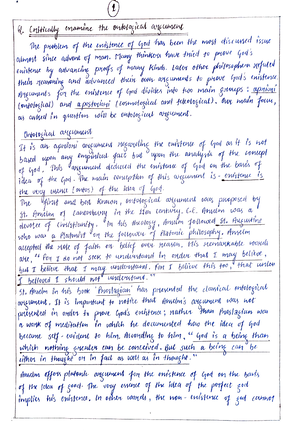 1
Q. Critically examine the ontological argument
The problem of the existence of God has been the most discussed issue
almost since advent of man. Many thinkers have tried to prove God's
existence by advancing proofs of many kinds. Later other philosophers refuted
their reasoning and advanced their own arguments to prove God's existence.
Arguments for the existence of God divides into two main groups: apriori
(ontological) and aposteriori (cosmological and teleological). Our main focus,
as asked in question will be ontological argument.
Ontological argument
It is an apriori argument regarding the existence of God as it is not
based upon any empirical fact but upon the analysis of the concept
of God. This argument deduced the existence of God on the basis of
idea of the God. The main conception of this argument is - existence is
the very essence of the idea of God.
The first and best known, ontological argument was proposed by
St. Anselm of Canterbury in the 11th century, C.E. Anselm was a
devotee of Christianity. In his theology, Anselm followed St. Augustine
who was a Platonist or the follower of Platonic philosophy. Anselm
accepted the role of faith or belief over reason. His remarkable words
are, "For I do not seek to understand in order that I may believe,
but I believe that I may understand. For I believe this too, that unless
I believed I should not understand."
St. Anselm in his book 'Proslogion' has presented the classical ontological
argument. It is important to notice that Anselm's argument was not
presented in order to prove God's existence; rather than Proslogion was
a work of meditation in which he documented how the idea of God
became self-evident to him. According to him, "God is a being than
which nothing greater can be conceived. But such a being can be
either in thought or in fact as well as in thought."
Anselm offers platonic argument for the existence of God on the basis
of the idea of God. The very essence of the idea of the perfect god
implies his existence. In other words, the non-existence of god cannot